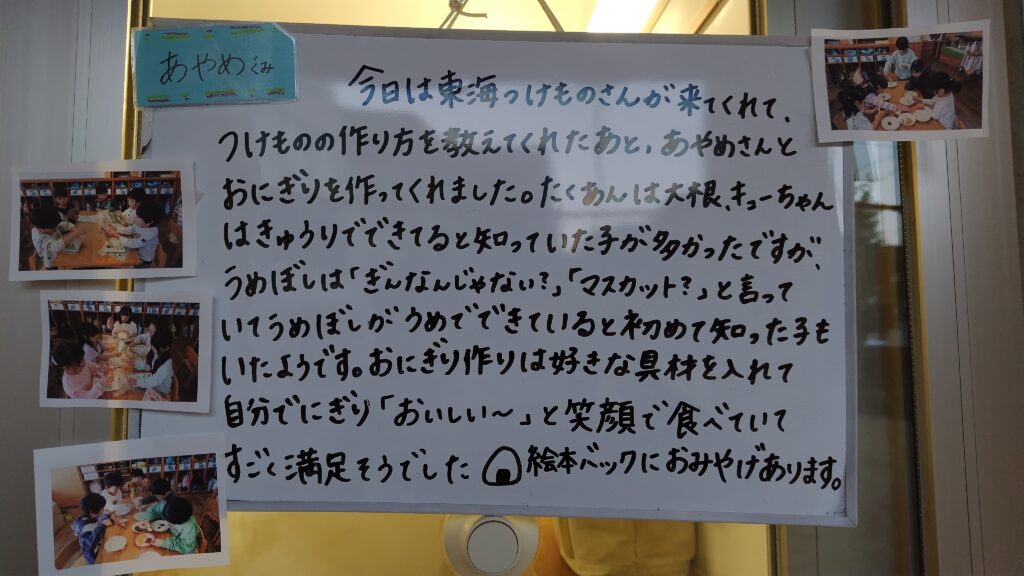 あやめぐみ
今日は東海つけものさんが来てくれて、
つけものの作り方を教えてくれたあと、あやめさんと
おにぎりを作ってくれました。たくあんは大根、キューちゃん
はきゅうりでできてると知っていた子が多かったですが、
うめぼしは「ぎんなんじゃない?」「マスカット?」と言って
いてうめぼしがうめでできていると初めて知った子も
いたようです。おにぎり作りは好きな具材を入れて
自分でにぎり「おいしい〜」と笑顔で食べていて
すごく満足そうでした 絵本バックにおみやげあります。